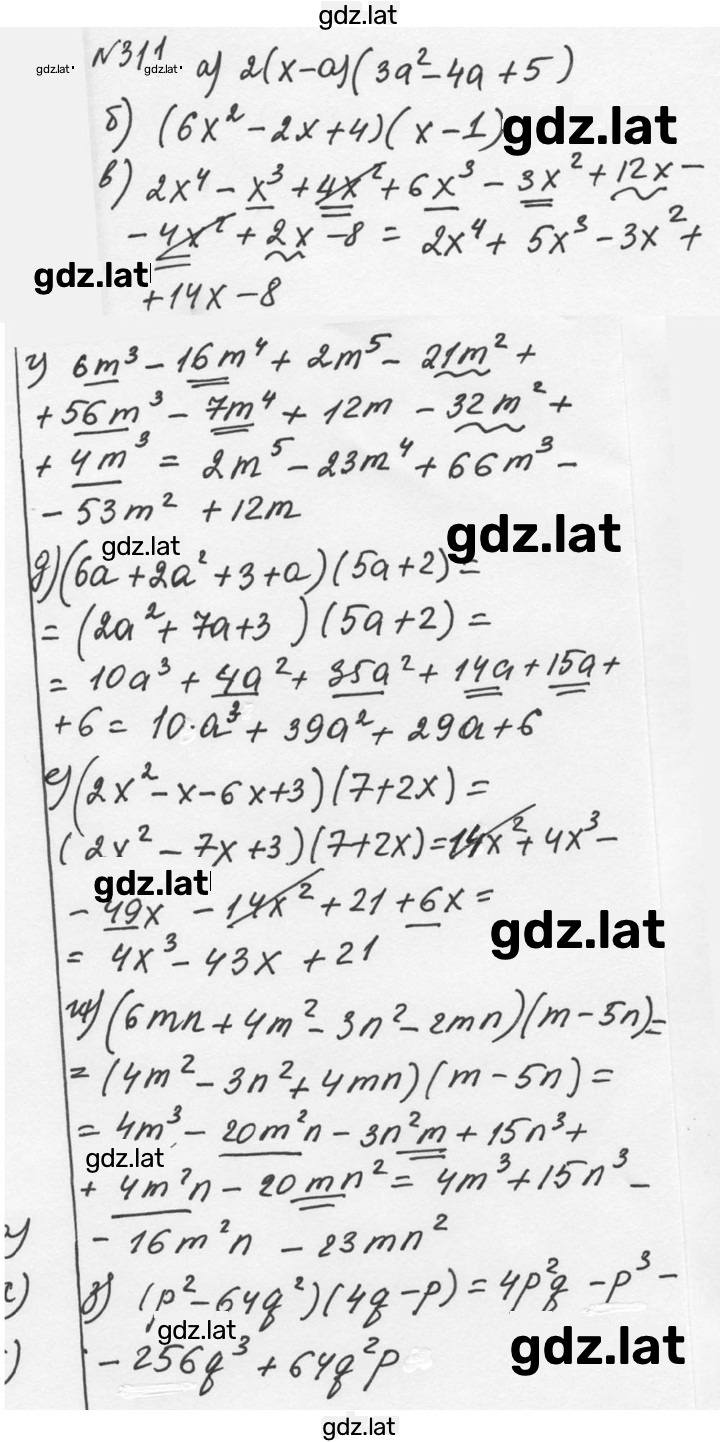 gdz.lat
№311 а) 2(x-a)(3a²-4a+5)
gdz.lat· gdz.lat·
б) (6x²-2x+4)(x-1)
gdz.lat
в) 2x⁴ - x³ + 4x² + 6x³ - 3x² + 12x -
- 4x² + 2x - 8 = 2x⁴ + 5x³ - 3x² +
gdz.lat
+14x - 8
г) 6m³ - 16m⁴ + 2m⁵ - 21m² +
+ 56m³ - 7m⁴ + 12m - 32m² +
+ 4m³ = 2m⁵ - 23m⁴ + 66m³ -
- 53m² + 12m
gdz.lat
gdz.lat
д) (6a + 2a² + 3 + a)(5a+2) =
= (2a² + 7a + 3)(5a+2) =
= 10a³ + 4a² + 35a² + 14a + 15a +
+ 6 = 10·a³ + 39a² + 29a + 6
е) (2x² - x - 6x + 3)(7+2x) =
(2x² - 7x + 3)(7+2x) = 14x² + 4x³ -
gdz.lat
- 49x - 14x² + 21 + 6x =
gdz.lat
= 4x³ - 43x + 21
ж) (6mn + 4m² - 3n² - 2mn)(m - 5n) =
= (4m² - 3n² + 4mn)(m - 5n) =
= 4m³ - 20m²n - 3n²m + 15n³ +
gdz.lat
+ 4m²n - 20mn² = 4m³ + 15n³ -
- 16m²n - 23mn²
у)
с)
з) (p² - 64q²)(4q - p) = 4p²q - p³ -
gdz.lat
gdz.lat
- 256q³ + 64q²p
)
gdz.lat